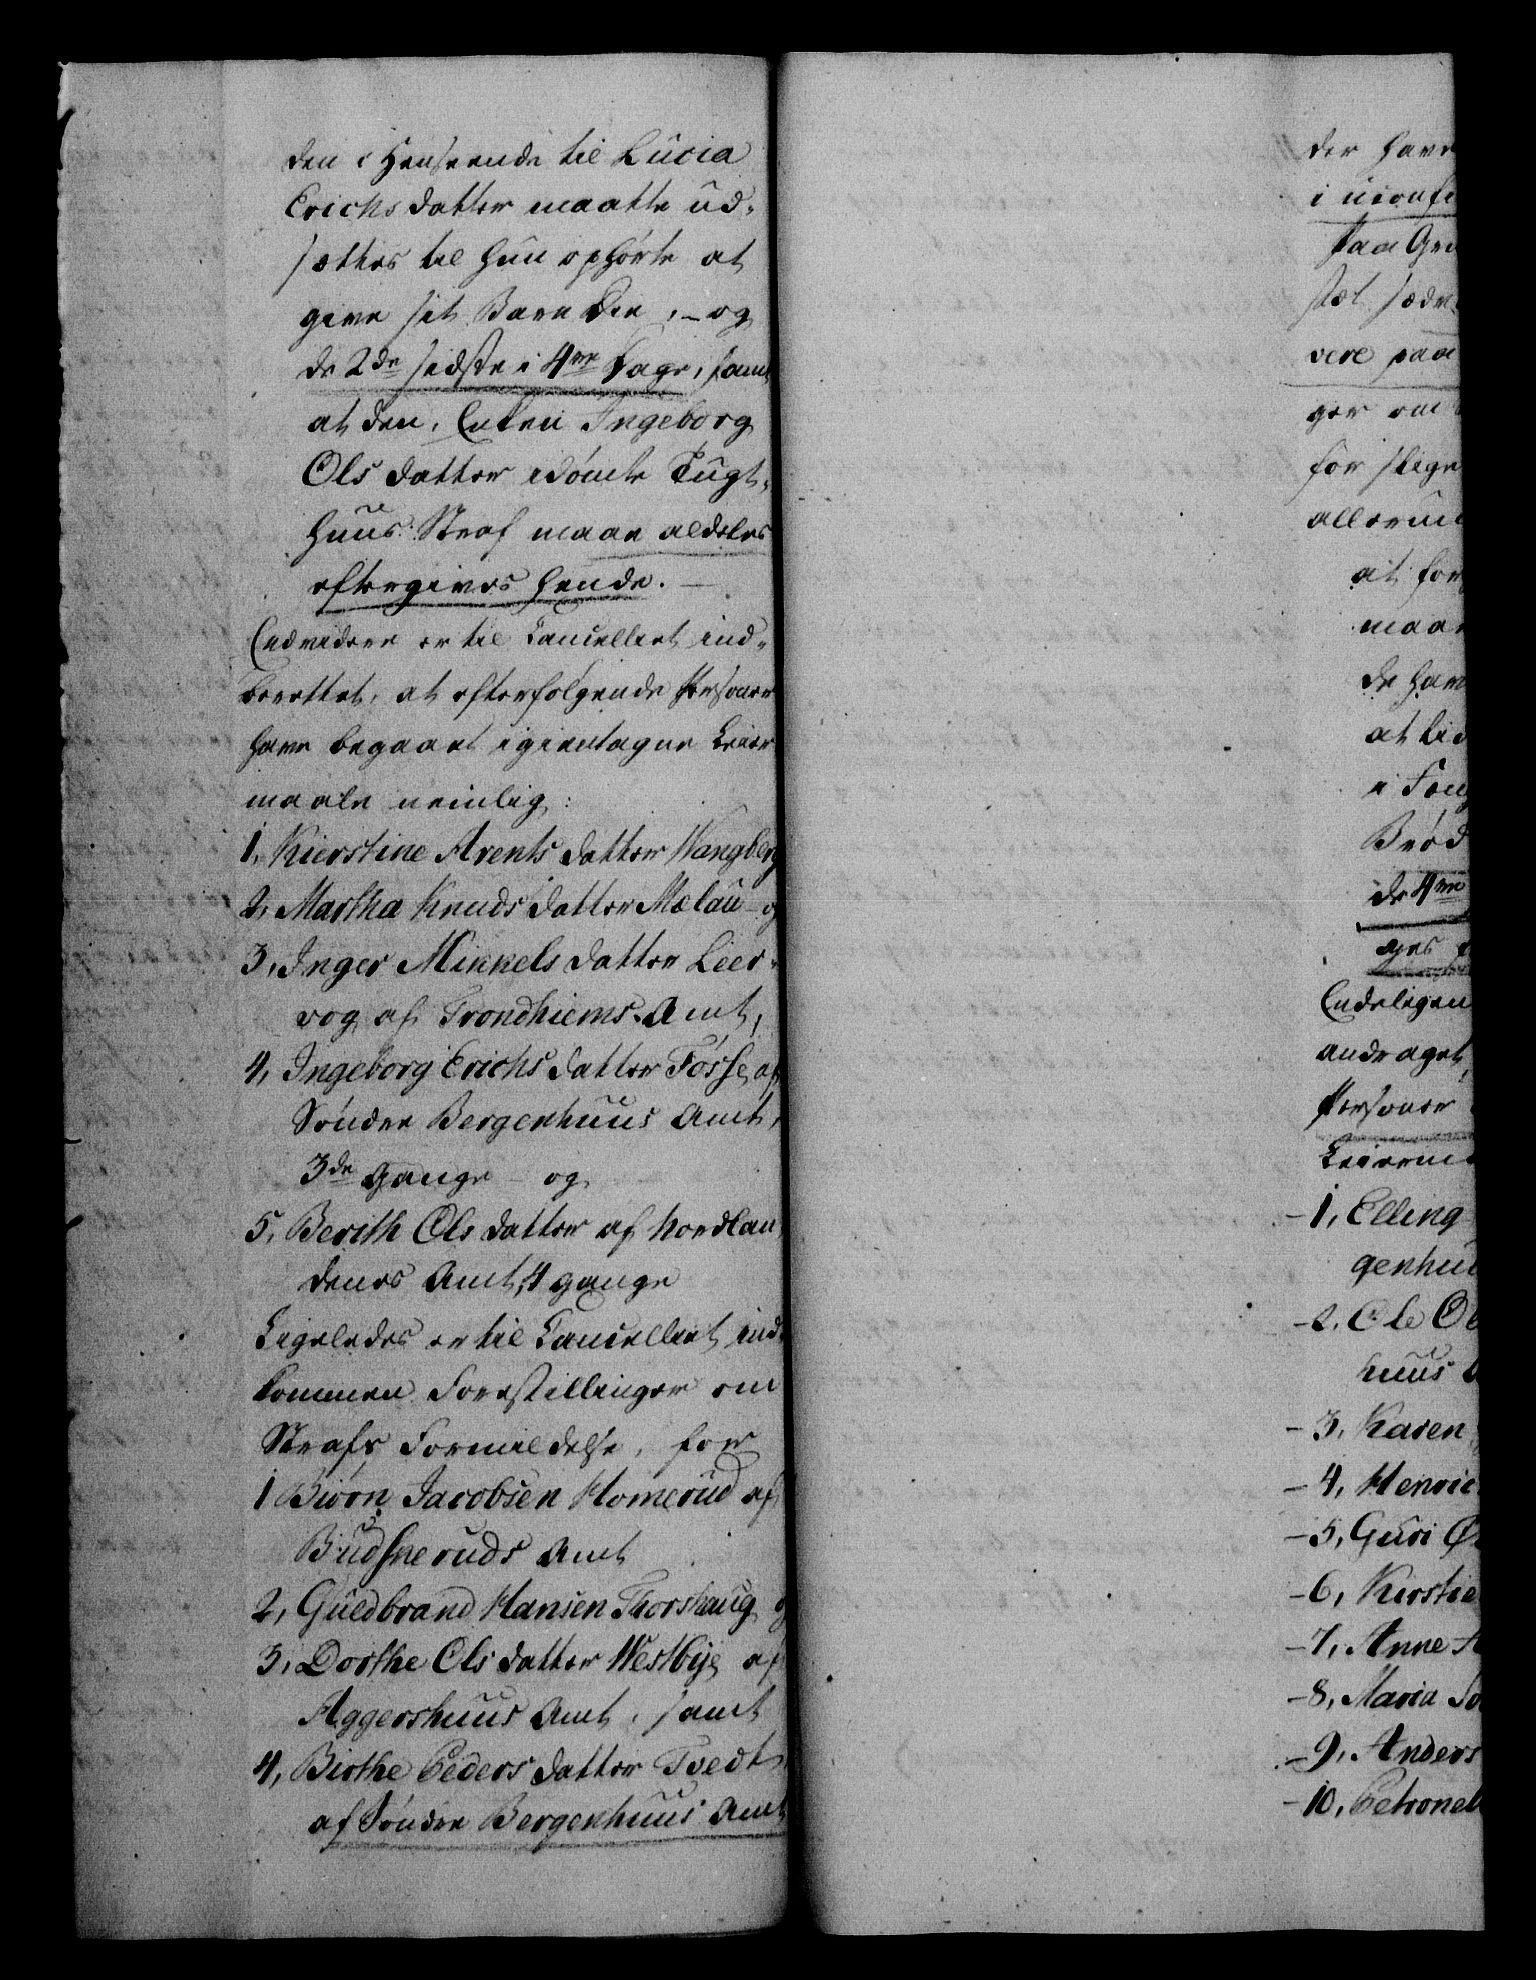 den i Henseende til Lucia
Erichsdatter maatte ud-
sættes til hun ophørte at
give sit Barn Die, - og
de 2de sidste i 4re Dage, samt
at den, Enken Ingeborg
Olsdatter idømte Tugt-
huus-Straf maae aldeles
eftergives hende. -
Endvidere er til Cancelliet ind-
berettet, at efterfølgende Personer
have begaaet igientagne Leier-
maale nemlig:
1, Kierstine Arentsdatter Wangberg
2, Martha Knudsdatter Mælau - og
3, Inger Mikkelsdatter Leer-
vog af Trondhiems Amt,
4, Ingeborg Erichsdatter Fosse, af
Søndre Bergenhuus Amt,
3de Gange - og
5, Berith Olsdatter af Nordlan-
denes Amt, 4 Gange
Ligeledes er til Cancelliet ind-
kommen Forestillinger om
Strafs Formildelse, for
1 Biørn Jacobsen Homerud af
Budskeruds Amt
2, Guldbrand Hansen Thorshaug og
3, Dorthe Olsdatter Westbye af
Aggershuus Amt, samt
4, Birthe Pedersdatter Tvedt
af Søndre Bergenhuus Amt
der have
i
paa
vere paa
ger om
for slige
at
maae
de have
at
i
Brød
de 4re
Endeligen
andraget,
Personer
1, Elling
genhuu
2, Ole Ol
huus
3, Karen
4, Henric
5, Guri
6, Kirstie
7, Anne
8, Maria
9, Anders
10, Petronel